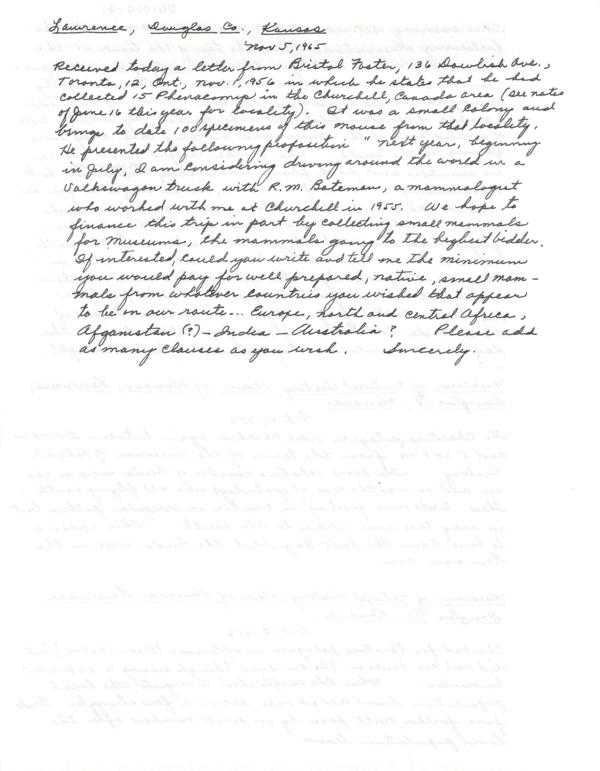 Lawrence, Douglas Co., Kansas
Nov 5, 1965
Received today a letter from Bristol Foster, 136 Dawlish Ave.,
Toronto, 12, Ont., Nov. 1, 1956 in which he states that he had
collected 15 Phenacomys in the Churchill, Canada area (see notes
of June 16 this year for locality). It was a small colony and
brings to date 100 specimens of this mouse from that locality.
He presented the following proposition "Next year, beginning
in July, I am considering driving around the world in a
Volkswagon truck with R.M. Bateman, a mammalogist
who worked with me at Churchill in 1955. We hope to
finance this trip in part by collecting small mammals
for Museums, the mammals going to the highest bidder.
If interested, could you write and tell me the minimum
you would pay for well prepared, native, small mam-
mals from whatever countries you wished that appear
to be in our route-.. Europe, north and central Africa,
Afganistan (?) - India - Australia? Please add
as many clauses as you wish. Sincerely.